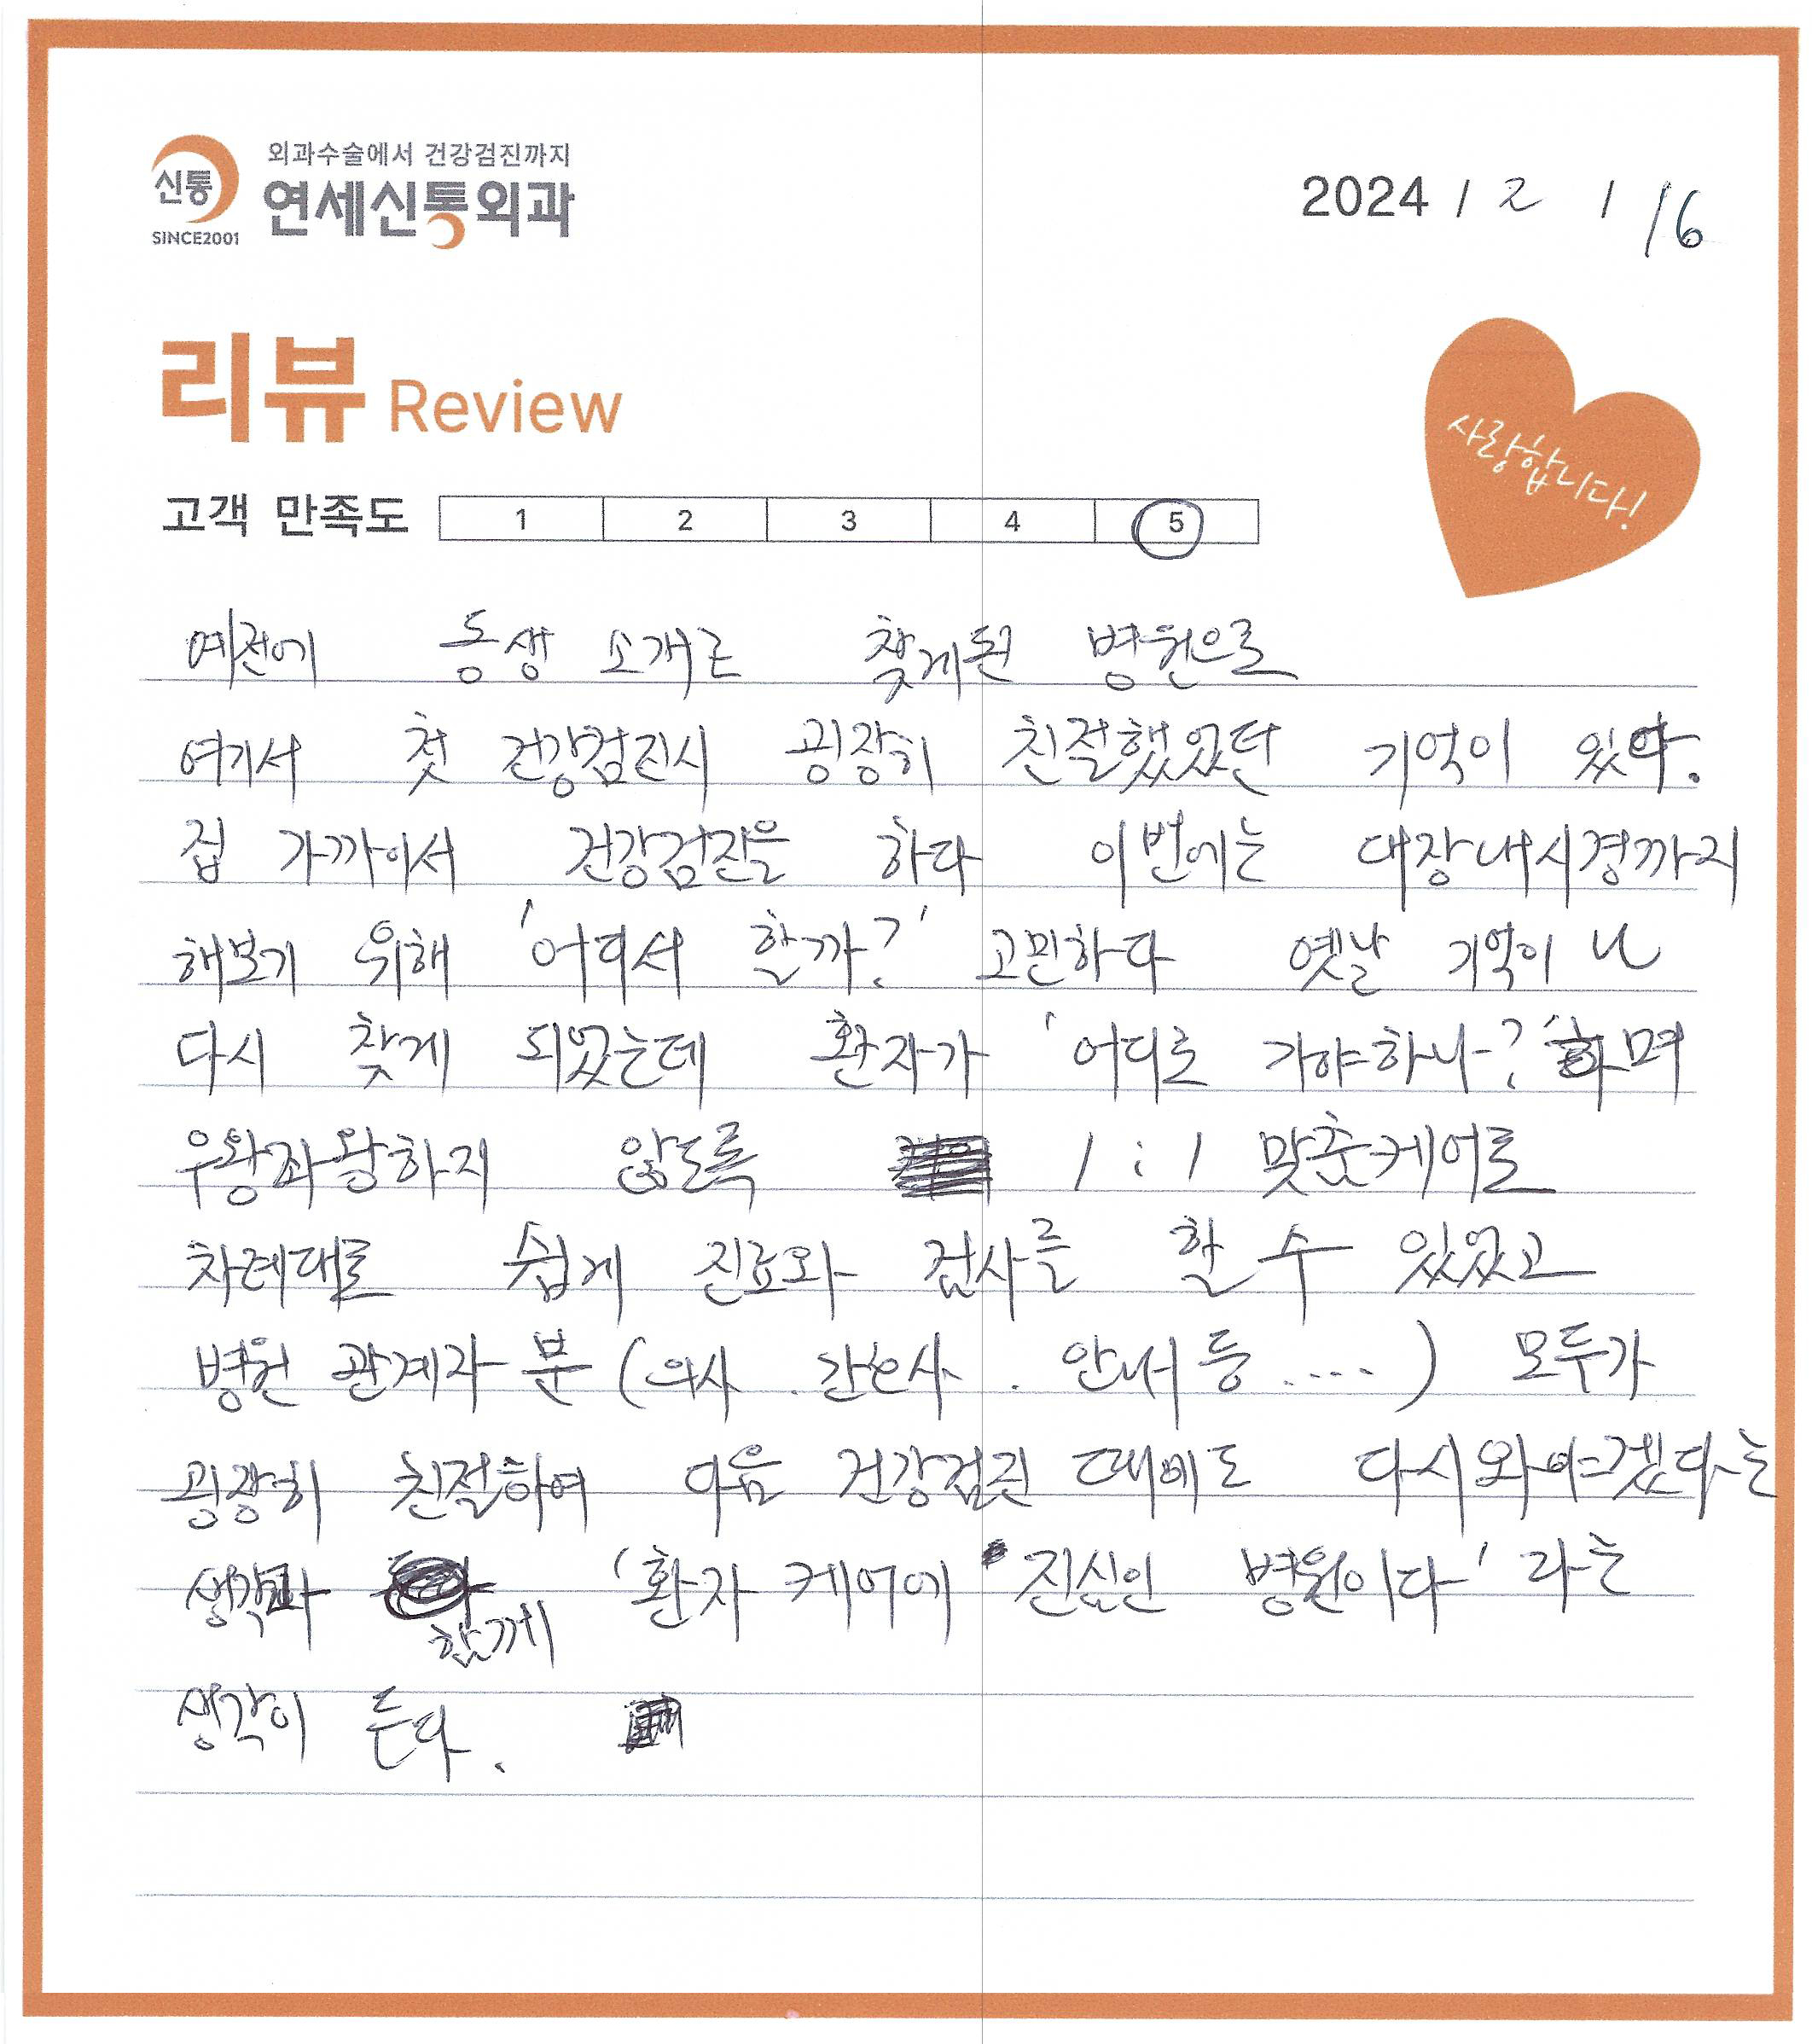 외과수술에서 건강검진까지
신통
연세신통외과
SINCE2001
2024 / 2 / 16
리뷰 Review
사랑합니다!
고객 만족도 1 2 3 4 5
예전에 동생 소개로 찾게된 병원으로
여기서 첫 건강검진시 굉장히 친절했었던 기억이 있다.
집 가까이서 건강검진을 하다 이번에는 대장내시경까지
해보기 위해 '어디서 할까?' 고민하다 옛날 기억이 나
다시 찾게 되었는데 환자가 '어디로 가야하나?' 하며
우왕좌왕하지 않도록 1:1 맞춤케어로
차례대로 쉽게 진료와 검사를 할 수 있었고
병원 관계자 분 (의사 . 간호사 . 안내 등 .....) 모두가
굉장히 친절하여 다음 건강검진 때에도 다시와야겠다는
생각과 함께 '환자 케어에 진심인 병원이다' 라는
생각이 든다.